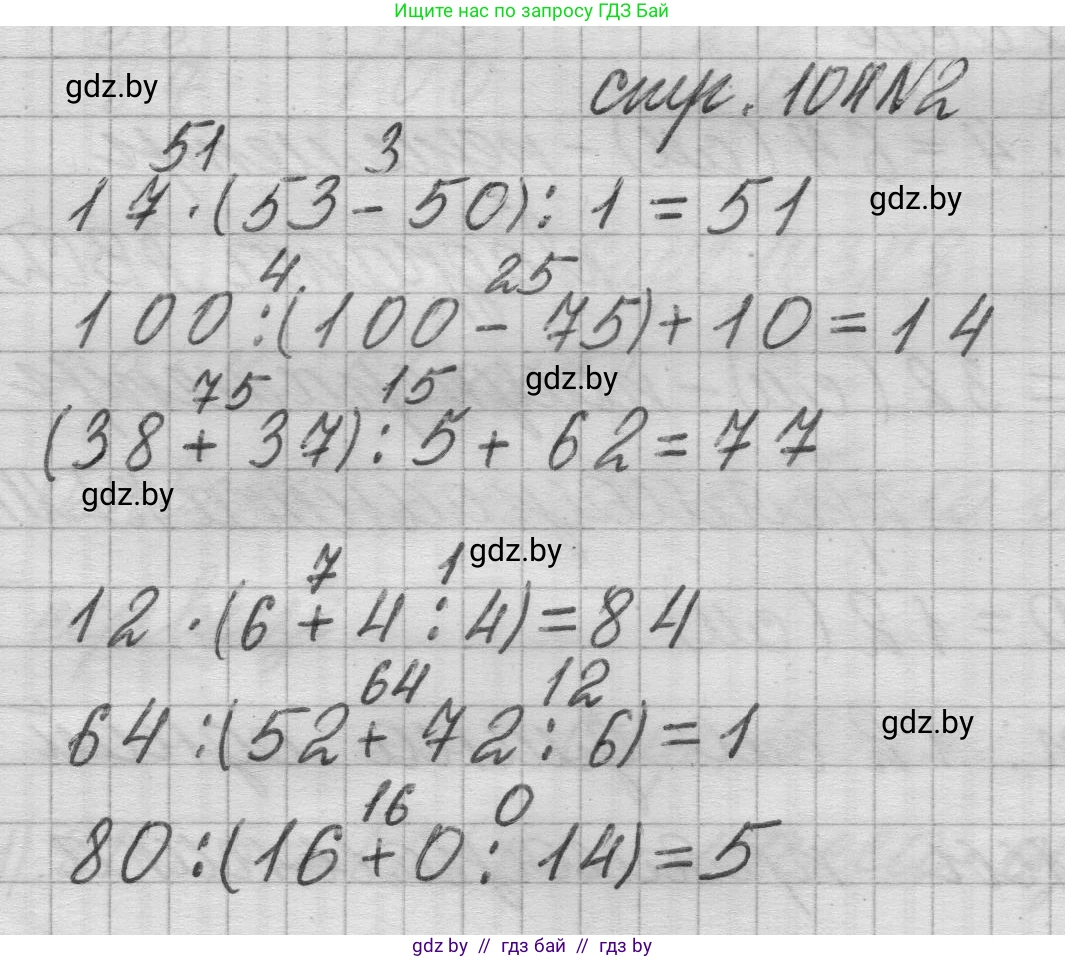 Ищите нас по запросу ГДЗ Бай
gdz.by
стр. 104 №2
51 3
17 · (53 - 50) : 1 = 51
gdz.by
4 25
100 : (100 - 75) + 10 = 14
75 15
gdz.by
(38 + 37) : 5 + 62 = 77
gdz.by
7 1
gdz.by
12 · (6 + 4 : 4) = 84
64 12
64 : (52 + 72 : 6) = 1
gdz.by
16 0
80 : (16 + 0 : 14) = 5
gdz by // гдз бай // гдз by